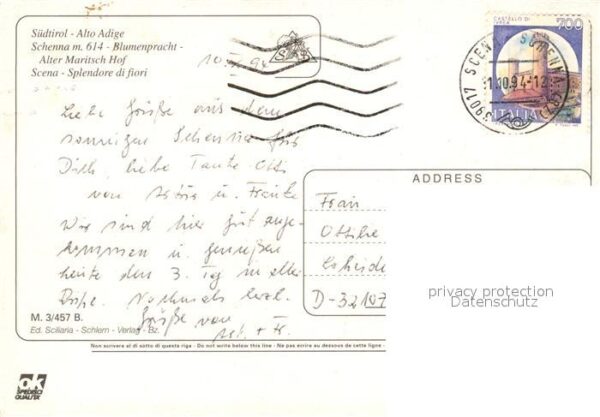 Südtirol - Alto Adige
Schenna m. 614 - Blumenpracht -
Alter Maritsch Hof
Scena - Splendore di fiori
Liebe Grüße aus dem
sonnigen Schenna für
Dich, liebe Tante Otti
von u.
Wir sind hier gut ange-
kommen u. genießen
heute den 3. Tag in aller
Nochmals herzl.
Grüße von
CASTELLO DI
700
ITALIA
39017 SCENA SCHENNA
11.10.94-12
ADDRESS
Frau
D-32107
privacy protection
Datenschutz
M. 3/457 B.
Ed. Sciliaria - Schlern - Verlag - Bz.
Non scrivere al di sotto di questa riga - Do not write below this line - Ne pas écrire au dessous de cette ligne -
ok
SPEDISCI
QUALITEX